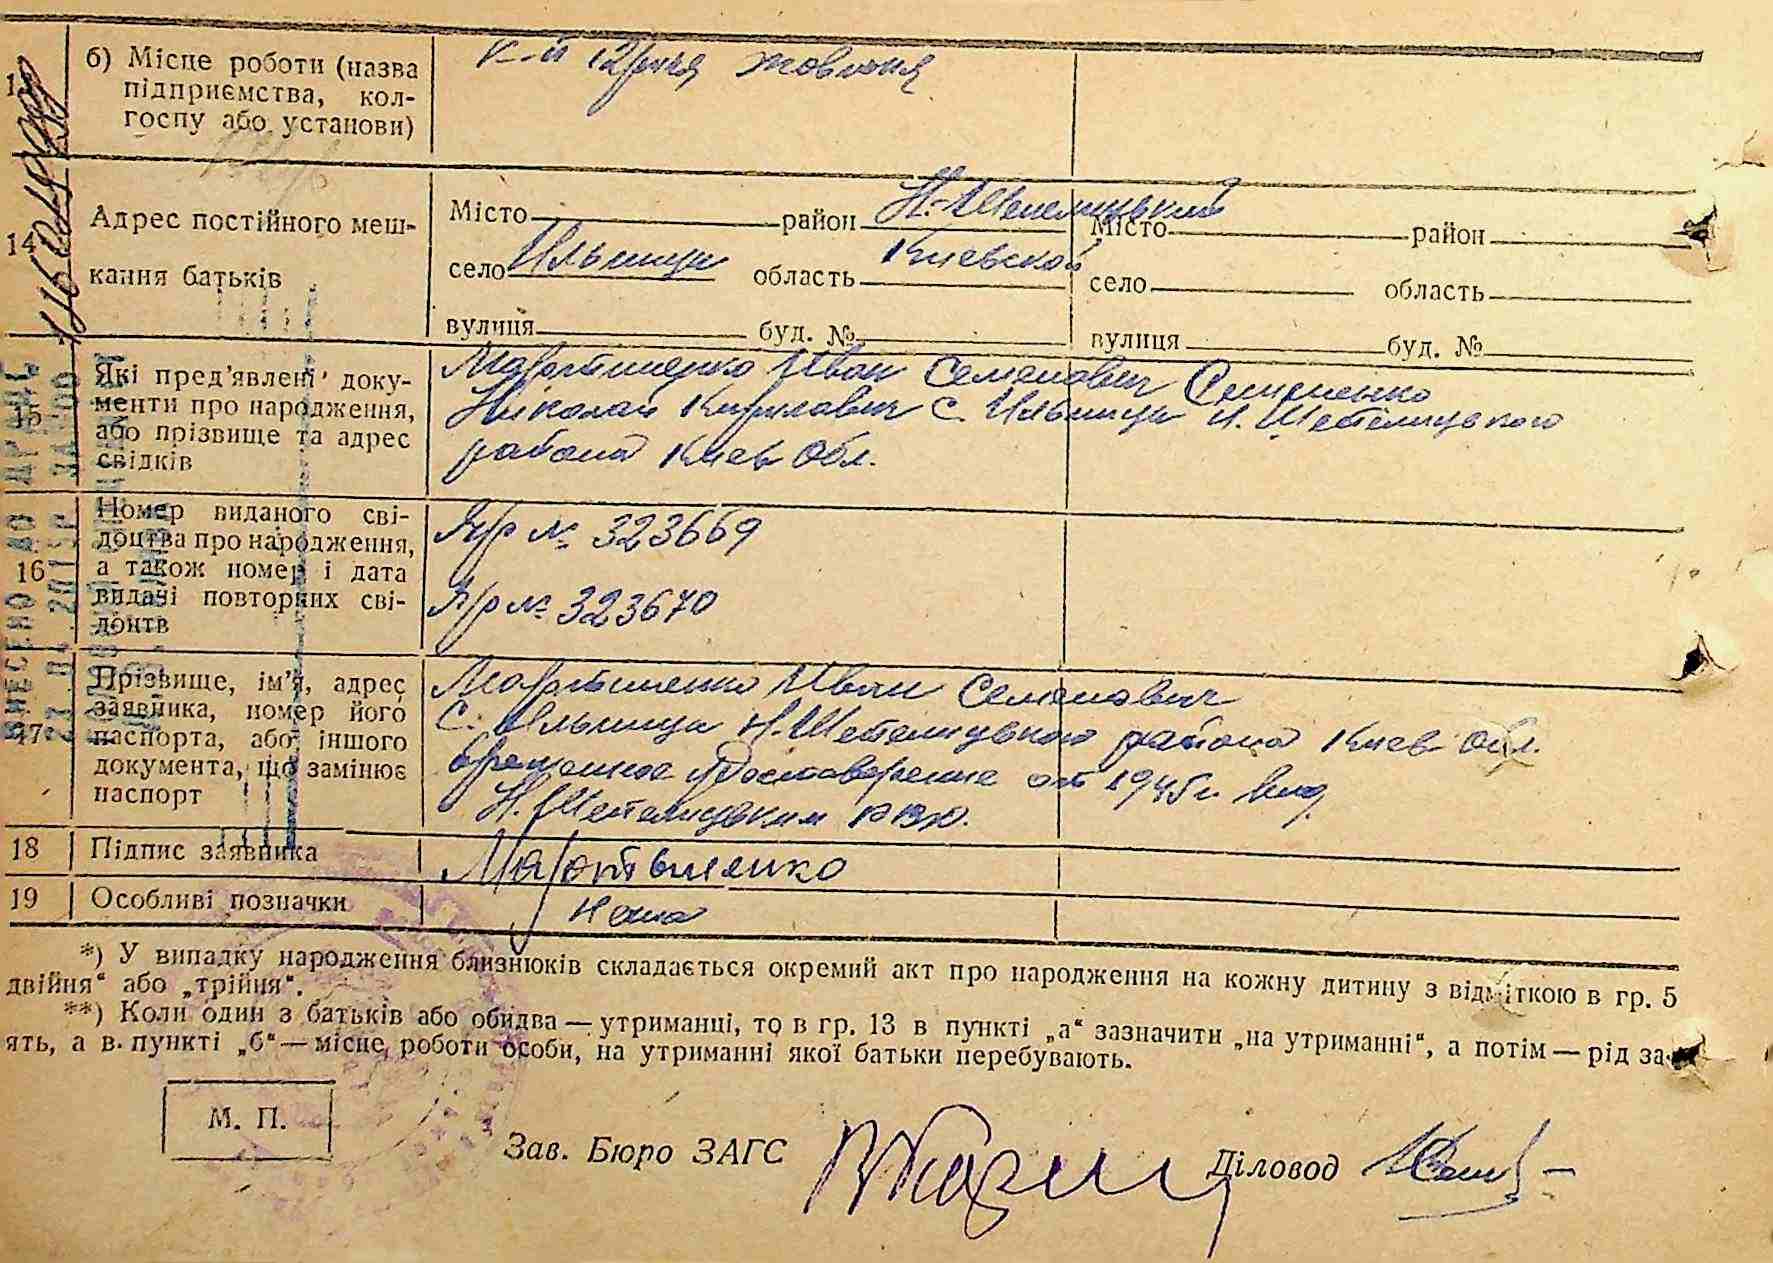 б) Місце роботи (назва
підприємства, кол-
госпу або установи)
К-п 12 річчя жовтня
14
Адрес постійного меш-
кання батьків
Місто район Н.-Шепелицький
село Ильинци область Киевской
вулиця буд. №
Місто район
село область
вулиця буд. №
15
Які пред'явлені доку-
менти про народження,
або прізвище та адрес
свідків
Мартиненко Иван Семенович
Николай Кирилович с. Ильинци Н. Шепелицького
района Киев Обл.
16
Номер виданого сві-
доцтва про народження,
а також номер і дата
видачі повторних сві-
доцтв
№ 323669
№ 323670
17
Прізвище, ім'я, адрес
заявника, номер його
паспорта, або іншого
документа, що замінює
паспорт
Мартиненко Иван Семенович
с. Ильинци Н. Шепелицького района Киев Обл.
временное удостоверение от 1945 г. выд.
Н. Шепелицьким
18 Підпис заявника
Мартыненко
19 Особливі позначки
Нема
*) У випадку народження близнюків складається окремий акт про народження на кожну дитину з відміткою в гр. 5
двійня" або „трійня".
**) Коли один з батьків або обидва — утриманці, то в гр. 13 в пункті „а" зазначити „на утриманні", а потім — рід за-
ять, а в пункті „б" — місце роботи особи, на утриманні якої батьки перебувають.
М. П.
Зав. Бюро ЗАГС
Діловод